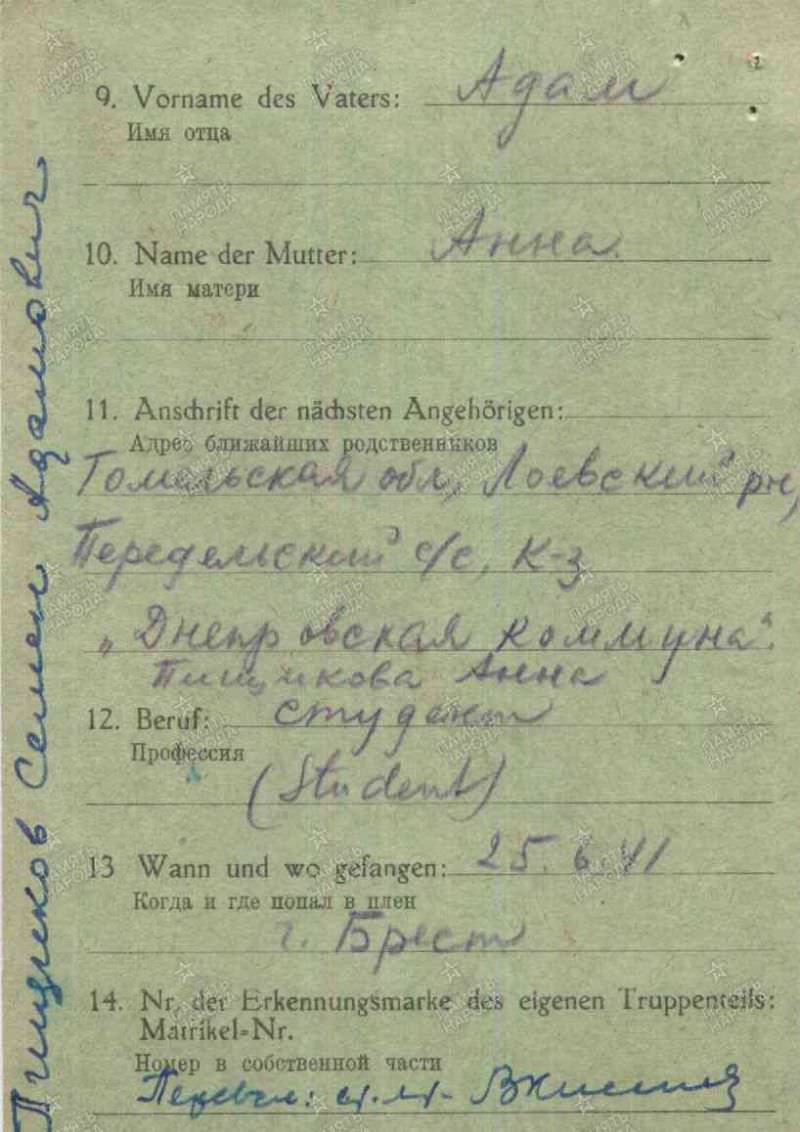 9. Vorname des Vaters: Адам
Имя отца
10. Name der Mutter: Анна
Имя матери
11. Anschrift der nächsten Angehörigen:
Адрес ближайших родственников
Гомельская обл, Лоевский рн,
Передельский с/с, К-з
„Днепровская коммуна".
Пищикова Анна
12. Beruf: студент
Профессия
(Student)
13 Wann und wo gefangen: 25.6.41
Когда и где попал в плен
г. Брест
14. Nr. der Erkennungsmarke des eigenen Truppenteils:
Matrikel-Nr.
Номер в собственной части
Перевел:
Пищиков Семен Адамович
ПАМЯТЬ НАРОДА